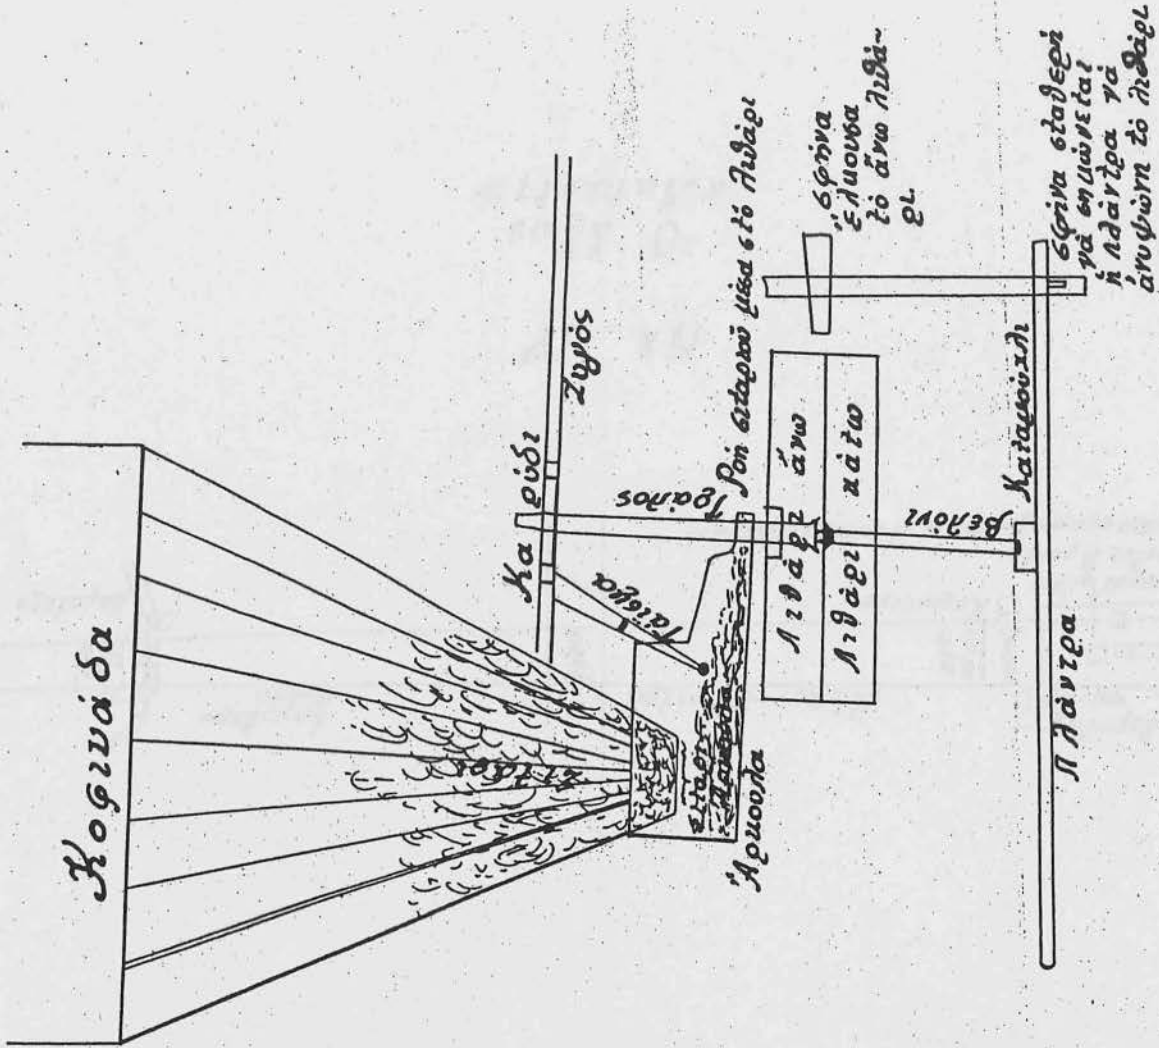 Κοφινάδα
Σιτάρι
Καρύδι
Ζυγός
Τράπος
Ροή σιταριοῦ μέσα στό λιθάρι
Σιτάρι
Ἄρκουλα
Λιθάρι ἄνω
Λιθάρι κάτω
σφήνα
ἕλκουσα
τὸ ἄνω λιθά-
ρι
βελόνι
Καταμούχλι
Πλάντρα
σφήνα σταθερή
νά σηκώνεται
ἡ πλάντρα νά
ἀνυψώνη τό λιθάρι